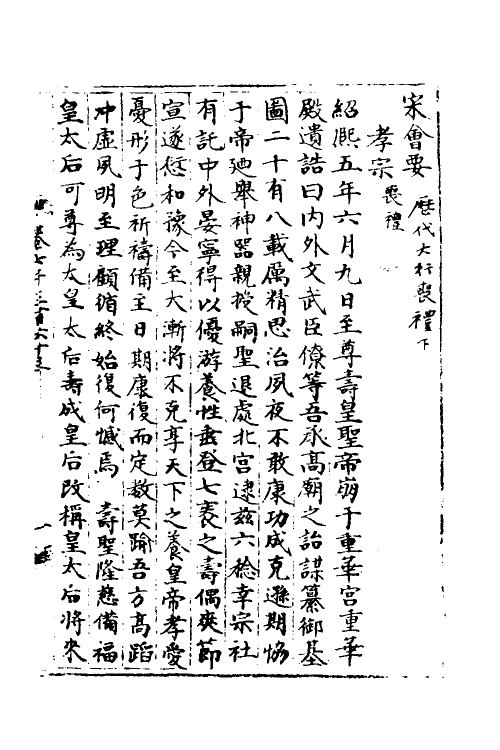 宋會要 歷代大行喪禮下
孝宗 喪禮
紹熙五年六月九日至尊壽皇聖帝崩于重華宮重華
殿遺誥曰內外文武臣僚等吾承高廟之詒謀纂御基
圖二十有八載厲精思治夙夜不敢康功成克遜期恊
于帝廸舉神器親授嗣聖退處北宮逮茲六稔幸宗社
有託中外晏寧得以優游養性垂登七袠之壽偶爽節
宣遂愆和豫今至大漸將不克享天下之養皇帝孝愛
憂形于色祈禱備至日期康復而定數莫踰吾方高蹈
冲虛夙明至理顧循終始復何憾焉 壽聖隆慈備福
皇太后可尊為太皇太后壽成皇后改稱皇太后將來
卷七千三百六十五 一